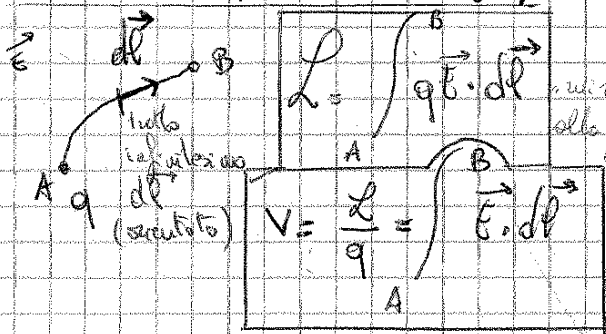 E⃗
dl⃗
B
A
q
tratto
infinitesimo
dl⃗
(orientato)
L = ∫_A^B qE⃗ · dl⃗
V = L/q = ∫_A^B E⃗ · dl⃗